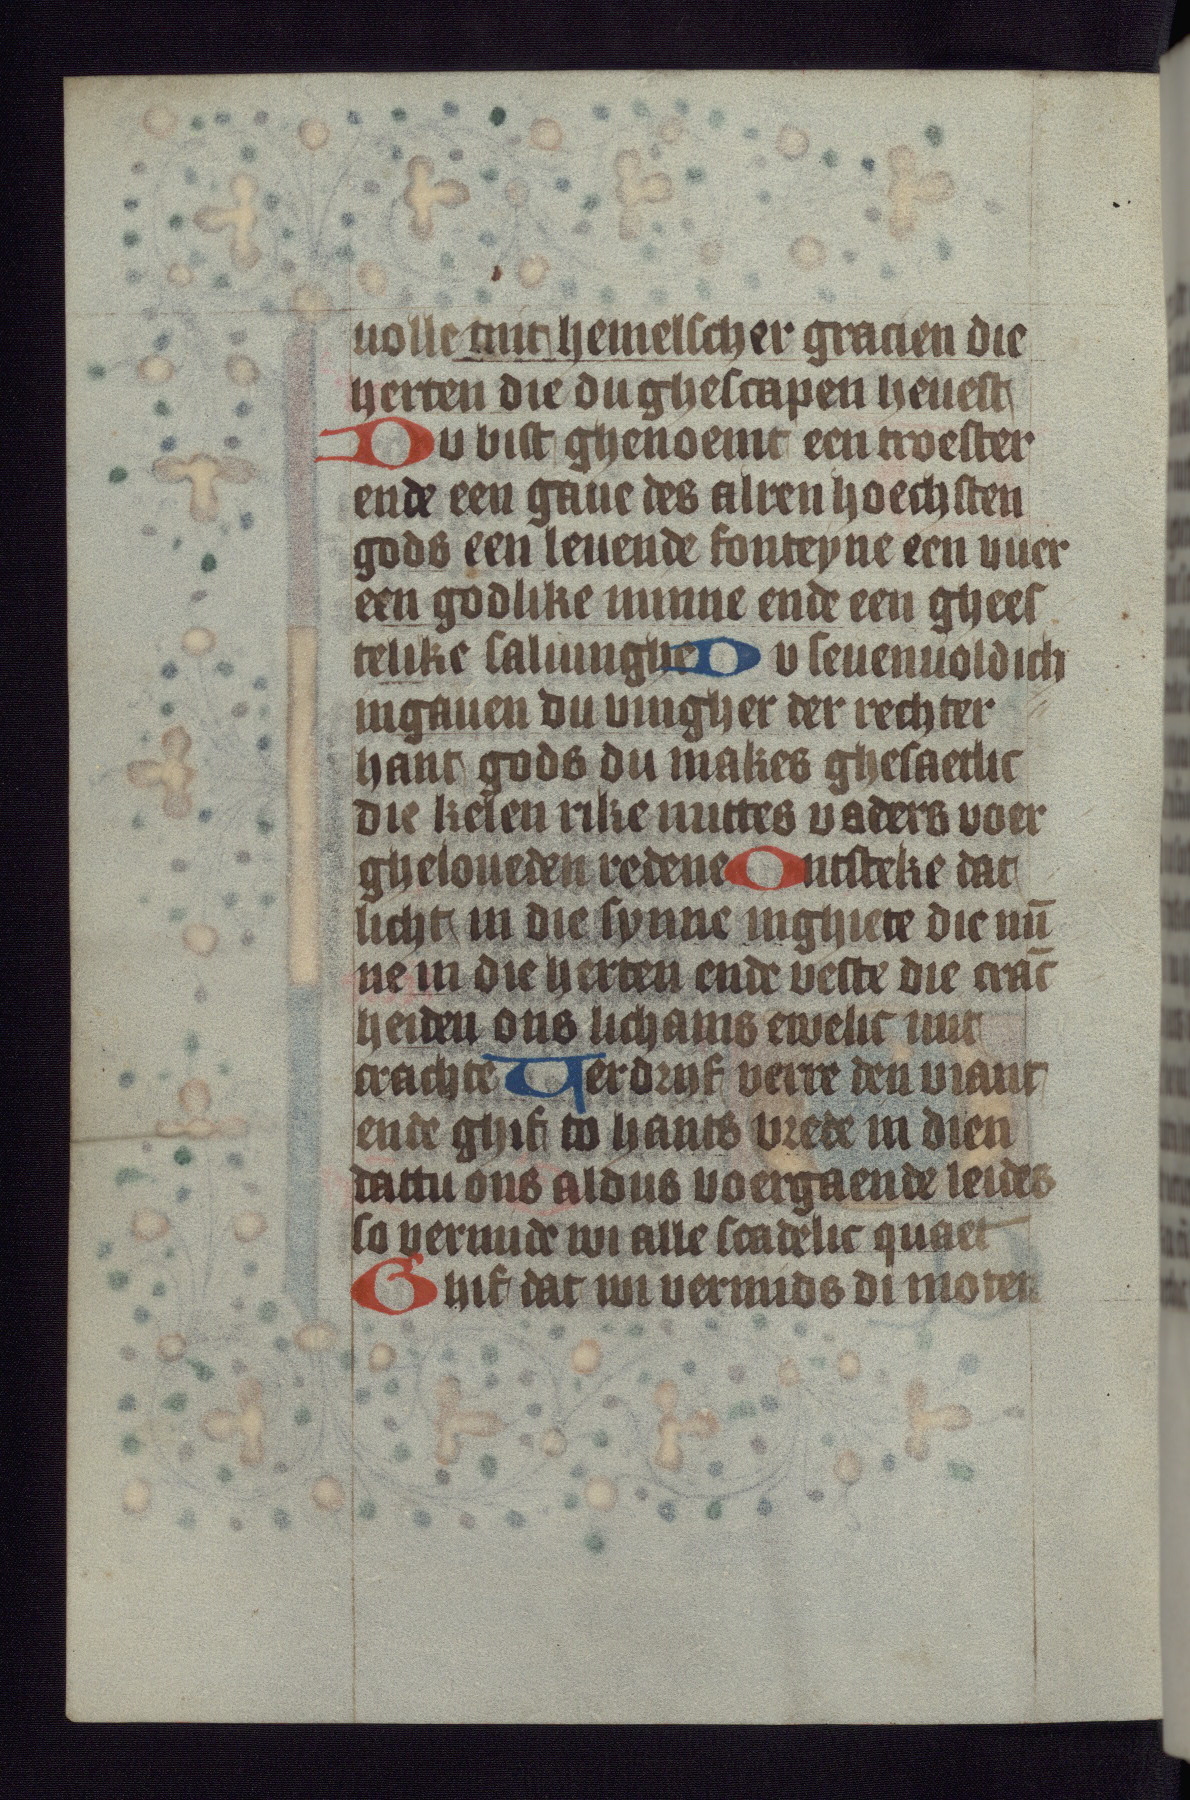 uolle mit hemelscher gracien die
herten die du ghescapen heuest
Du bist ghenoemt een troester
ende een gaue des alren hoechsten
gods een leuende fonteyne een vuer
een godlike minne ende een ghees
telike saluinghe Du seuenuoldich
ingauen du vingher der rechter
hant gods du makes ghesaetlic
die kelen rike mittes vaders voer
gheloueden redene Ontsteke dat
licht in die synne inghiete die mī
ne in die herten ende veste die cranc̄
heiden ons lichams ewelic mit
crachte Verdrijf verre den viant
ende ghif to hants vrede in dien
dattu ons aldus voergaende leides
so vermide wi alle scadelic quaet
Ghif dat wi vermids di moten